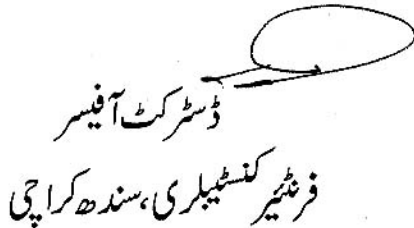 ڈسٹرکٹ آفیسر
فرنٹئیر کنسٹیبلری، سندھ کراچی